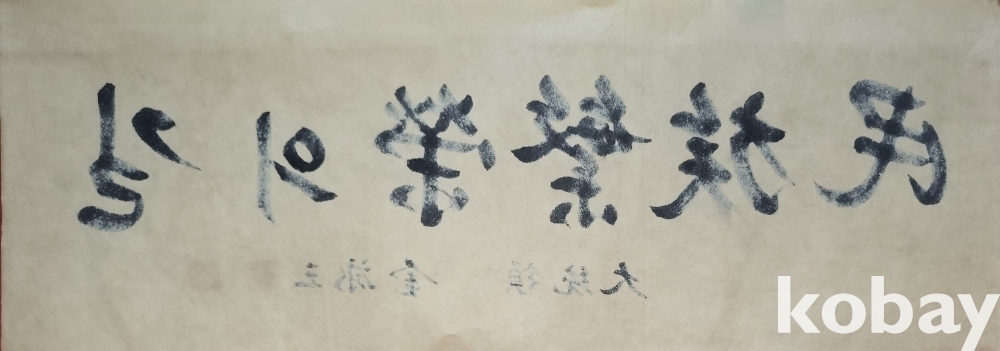 民族繁榮의 길
大統領 金泳三
kobay